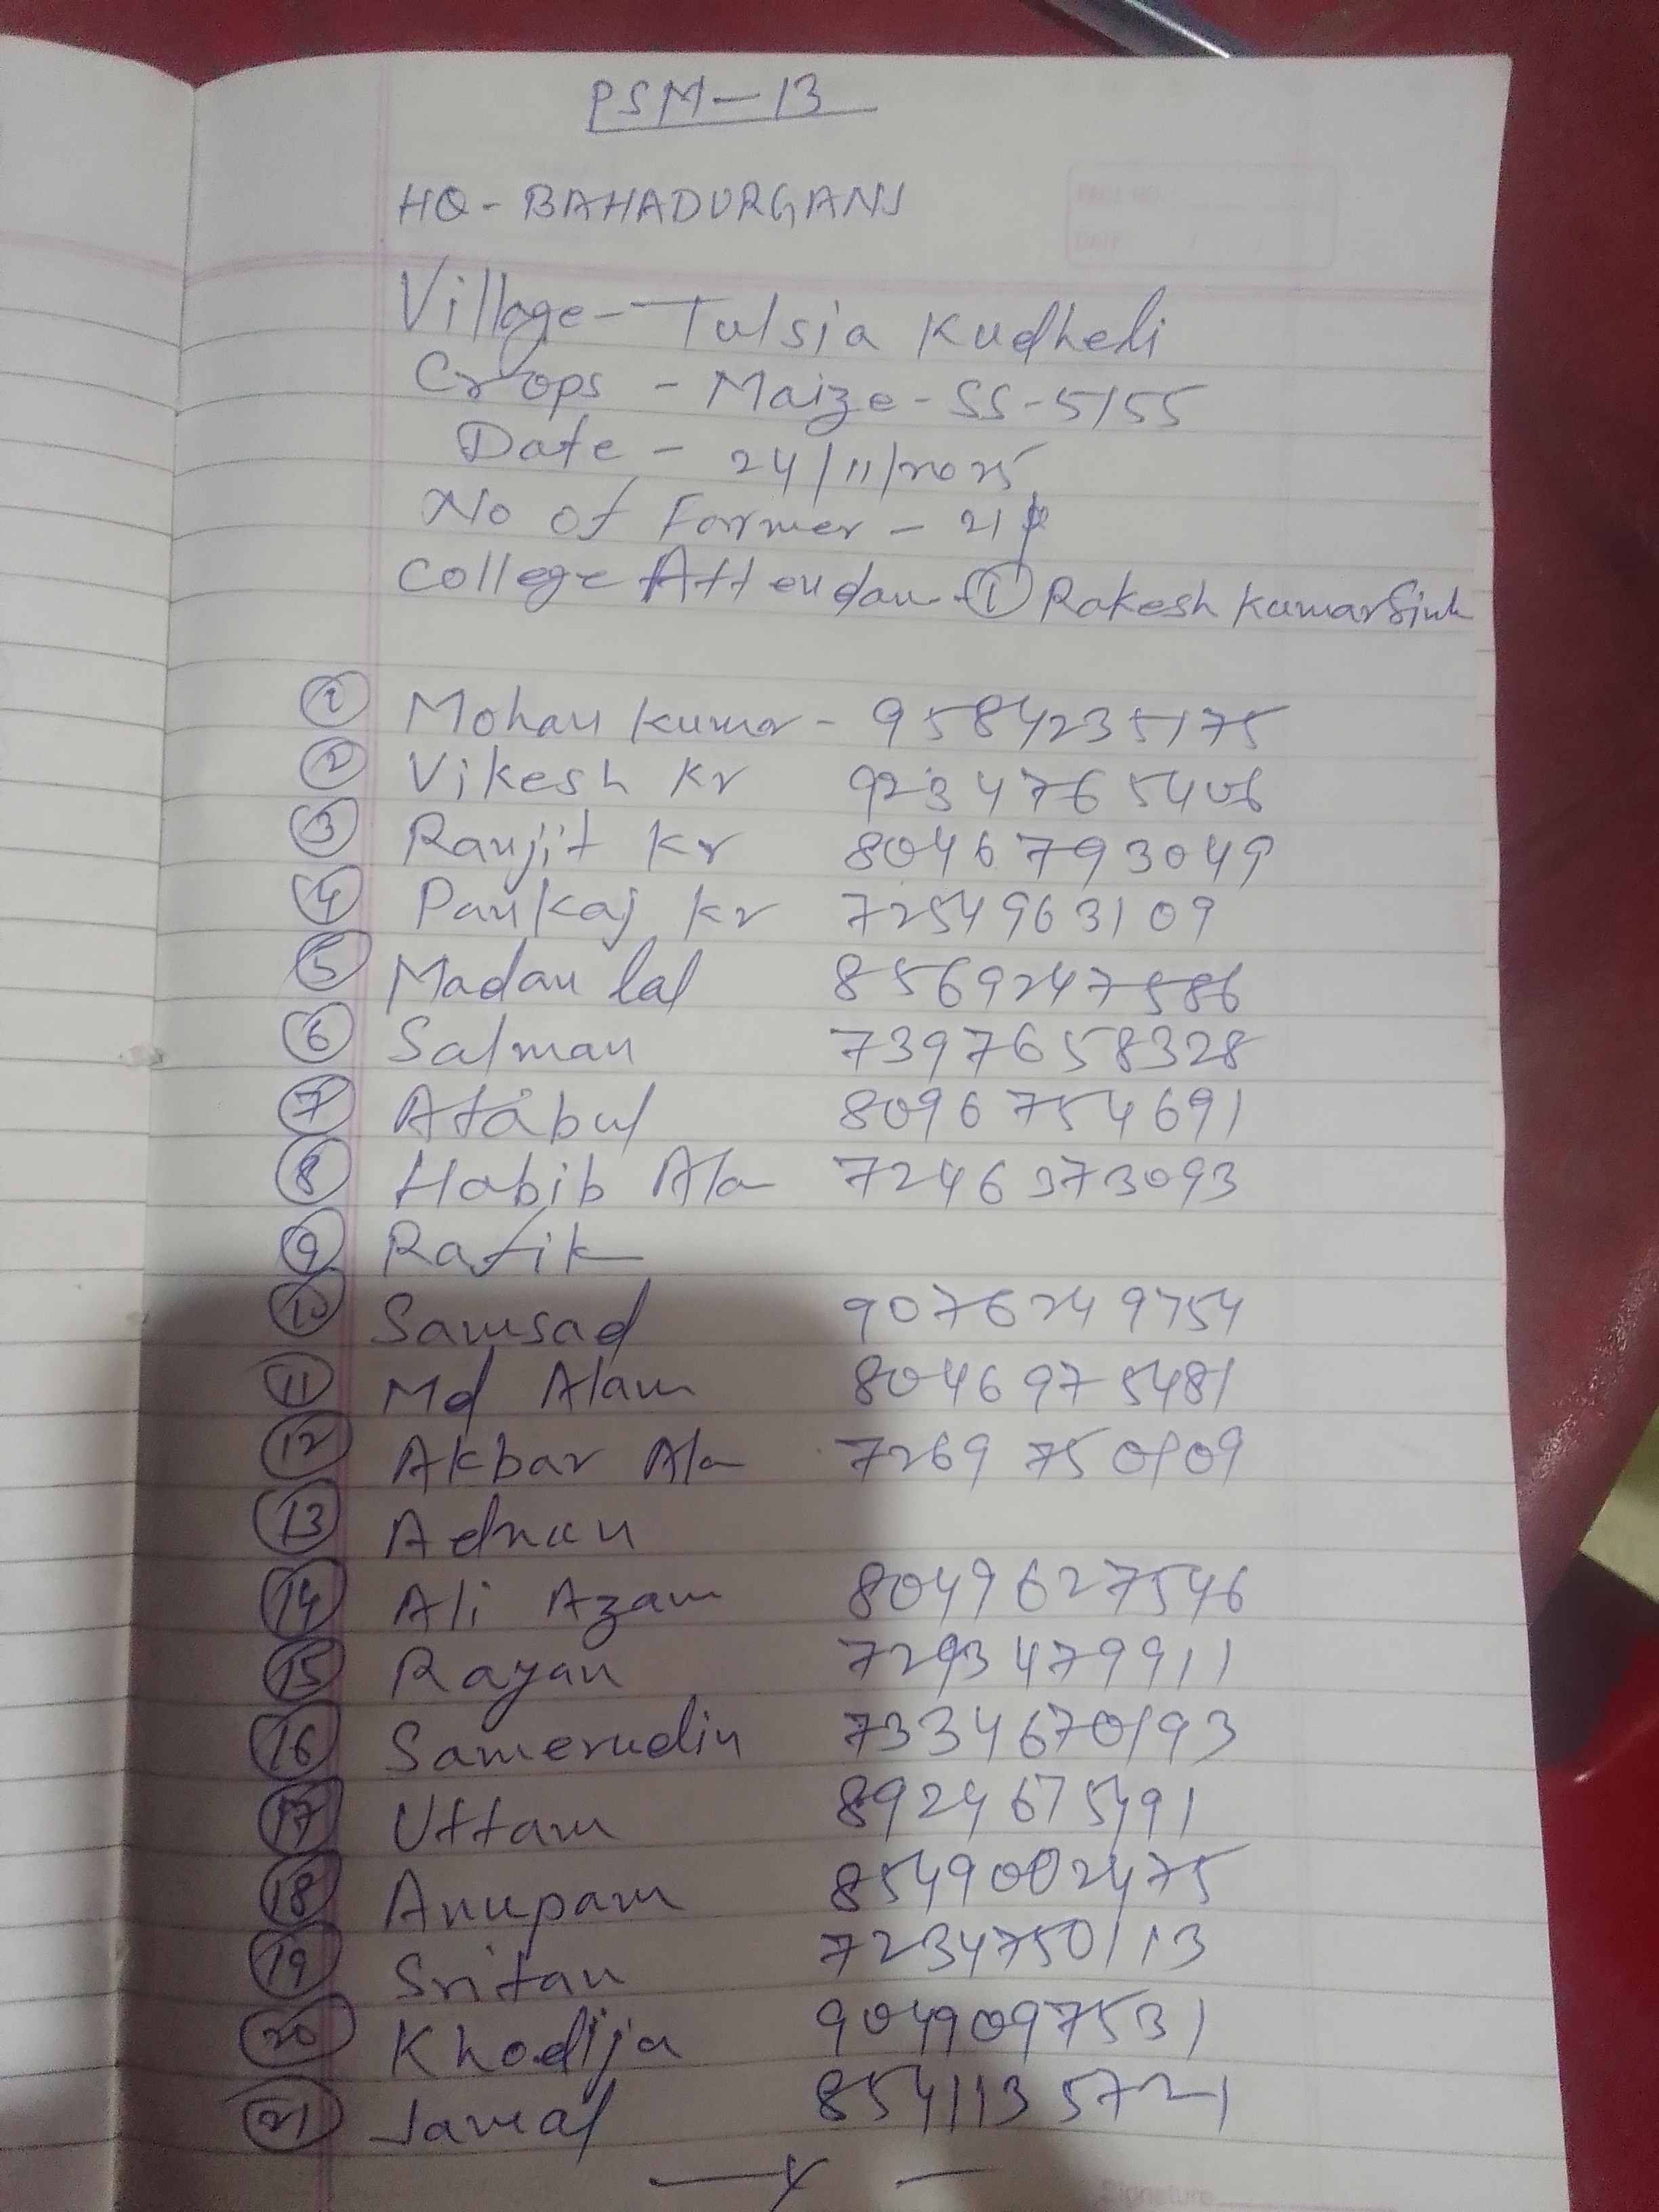 PSM-13
HQ - BAHADURGANJ
Village - Tulsia Kudheli
Crops - Maize - SS-5155
Date - 24/11/2025
No of Farmer - 21
College Attendan - ① Rakesh Kumar Sinh
① Mohan Kumar - 9584235175
② Vikesh Kr 9234765406
③ Ranjit Kr 8046793049
④ Pankaj Kr 7254963109
⑤ Madan Lal 8569247586
⑥ Salman 7397658328
⑦ Atabul 8096754691
⑧ Habib Ala 7246373093
⑨ Rafik
⑩ Samsad 9076249754
⑪ Md Alam 8046975481
⑫ Akbar Ala 7269750109
⑬ Adnan
⑭ Ali Azam 8049627546
⑮ Rayan 7293479911
⑯ Samerudin 7334670193
⑰ Uttam 8924675491
⑱ Anupam 8549002475
⑲ Sritan 7234750113
⑳ Khodija 9049097531
㉑ Jamal 8541135721
Signature